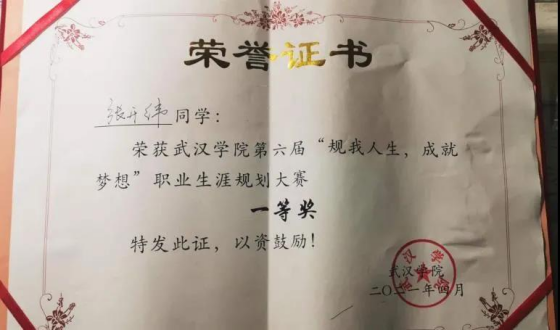 荣誉证书
张开纬同学：
荣获武汉学院第六届“规我人生，成就
梦想”职业生涯规划大赛
一等奖
特发此证，以资鼓励！
武汉学院
二〇二一年四月